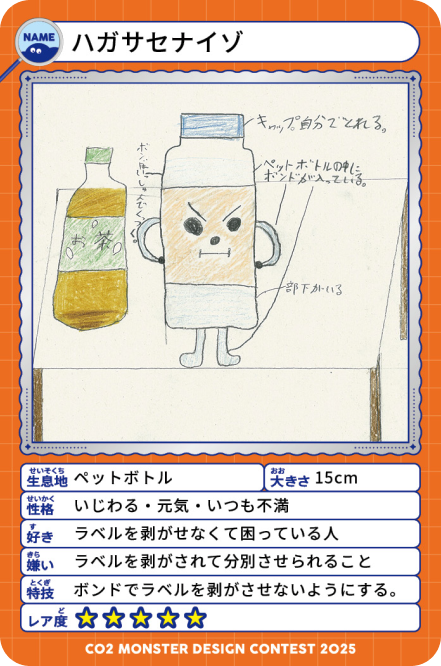 NAME
ハガサセナイゾ
キャップ自分でとれる。
ペットボトルの中に
ボンドが入っている。
お茶
部下がいる
せいそくち
生息地 ペットボトル
おお
大きさ 15cm
せいかく
性格 いじわる・元気・いつも不満
す
好き ラベルを剥がせなくて困っている人
きら
嫌い ラベルを剥がされて分別させられること
とくぎ
特技 ボンドでラベルを剥がさせないようにする。
ど
レア度
CO2 MONSTER DESIGN CONTEST 2025